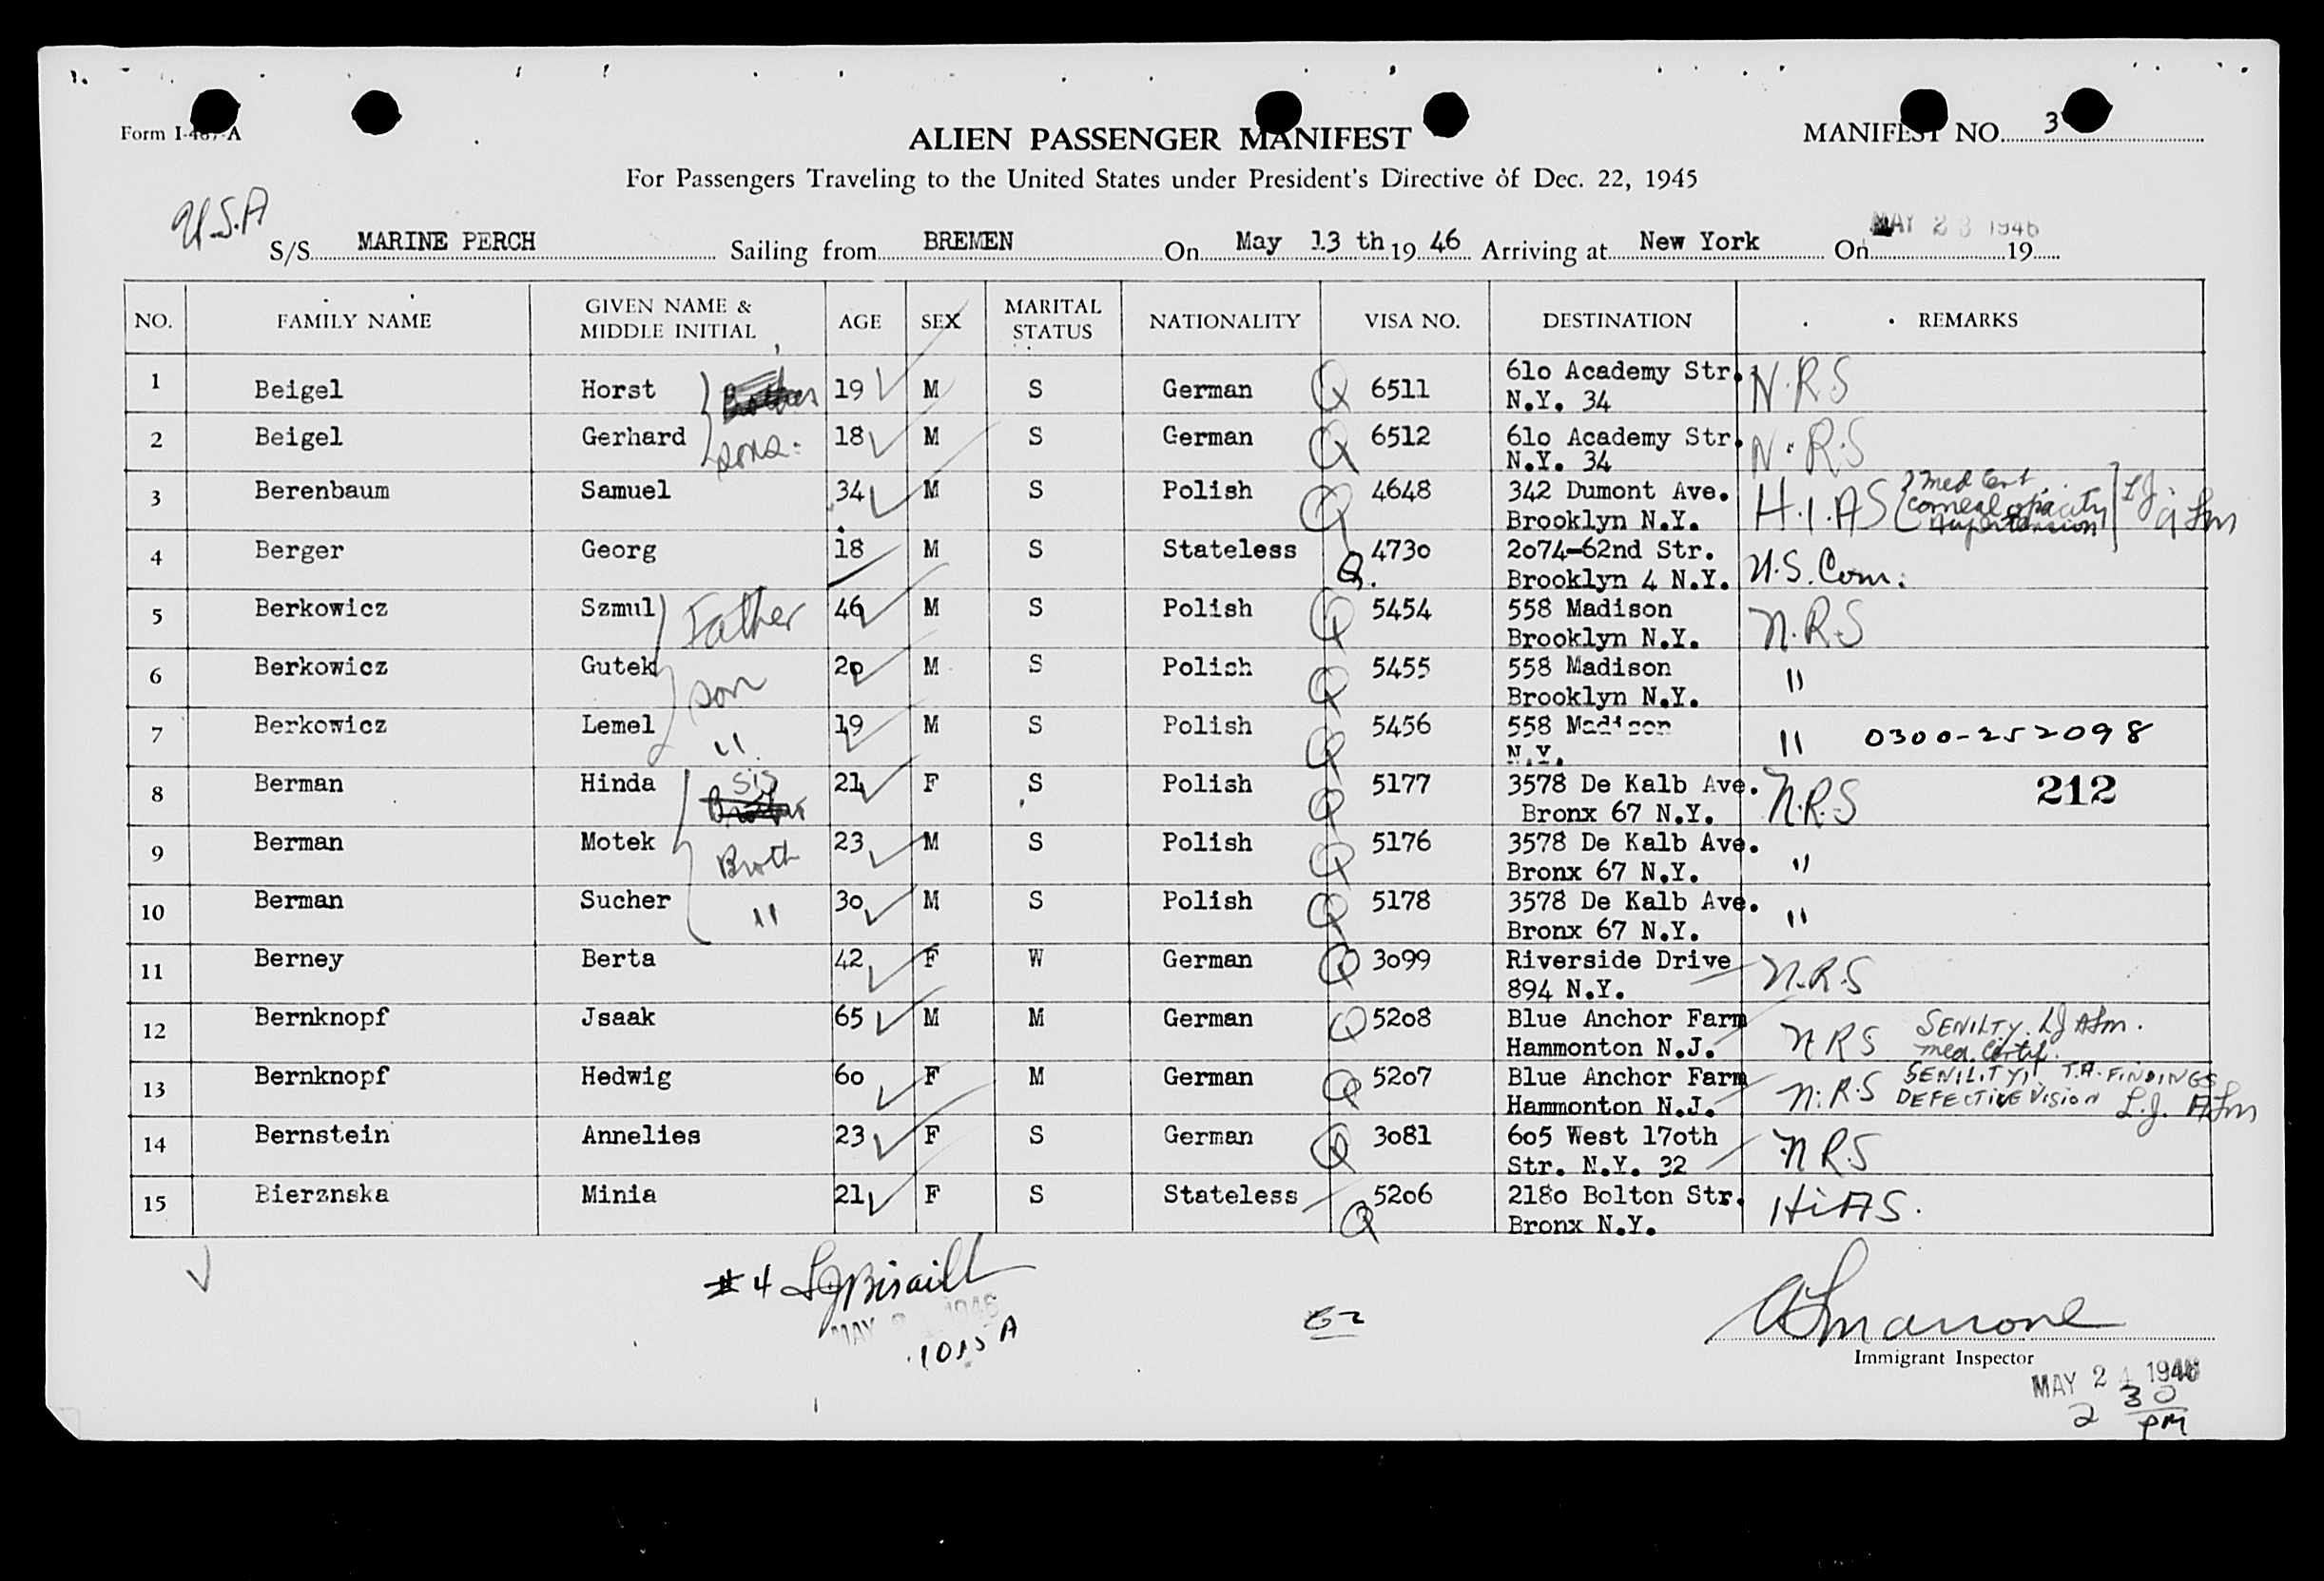 Form I-487-A
ALIEN PASSENGER MANIFEST
MANIFEST NO. 3
For Passengers Traveling to the United States under President's Directive of Dec. 22, 1945
U.S.A
S/S MARINE PERCH Sailing from BREMEN On May 13 th 19 46 Arriving at New York On MAY 23 1946 19
NO. FAMILY NAME GIVEN NAME & MIDDLE INITIAL AGE SEX MARITAL STATUS NATIONALITY VISA NO. DESTINATION REMARKS
1 Beigel Horst 19 M S German Q 6511 610 Academy Str. N.R.S
N.Y. 34
2 Beigel Gerhard sons 18 M S German Q 6512 610 Academy Str. N.R.S
N.Y. 34
3 Berenbaum Samuel 34 M S Polish Q 4648 342 Dumont Ave. H.I.AS Med Cert.
Brooklyn N.Y. corneal opacity
Hypertension
4 Berger Georg 18 M S Stateless Q. 4730 2074-62nd Str. U.S. Com.
Brooklyn 4 N.Y.
5 Berkowicz Szmul Father 46 M S Polish Q 5454 558 Madison N.R.S
Brooklyn N.Y.
6 Berkowicz Gutek son 20 M S Polish Q 5455 558 Madison "
Brooklyn N.Y.
7 Berkowicz Lemel " 19 M S Polish Q 5456 558 Madison " 0300-252098
N.Y.
8 Berman Hinda sis 21 F S Polish Q 5177 3578 De Kalb Ave. N.R.S 212
Bronx 67 N.Y.
9 Berman Motek Broth 23 M S Polish Q 5176 3578 De Kalb Ave. "
Bronx 67 N.Y.
10 Berman Sucher " 30 M S Polish Q 5178 3578 De Kalb Ave. "
Bronx 67 N.Y.
11 Berney Berta 42 F W German Q 3099 Riverside Drive N.R.S
894 N.Y.
12 Bernknopf Jsaak 65 M M German Q 5208 Blue Anchor Farm N R S SENILTY. LJ ASm.
Hammonton N.J. med. Certif.
13 Bernknopf Hedwig 60 F M German Q 5207 Blue Anchor Farm N.R.S SENILITY, T.A. FINDINGS
Hammonton N.J. DEFECTIVE VISION L.J. ASm
14 Bernstein Annelies 23 F S German Q 3081 605 West 170th N R S
Str. N.Y. 32
15 Bierznska Minia 21 F S Stateless Q 5206 2180 Bolton Str. HiAS.
Bronx N.Y.
#4
MAY 1946
Immigrant Inspector
MAY 24 1946
2 30
PM